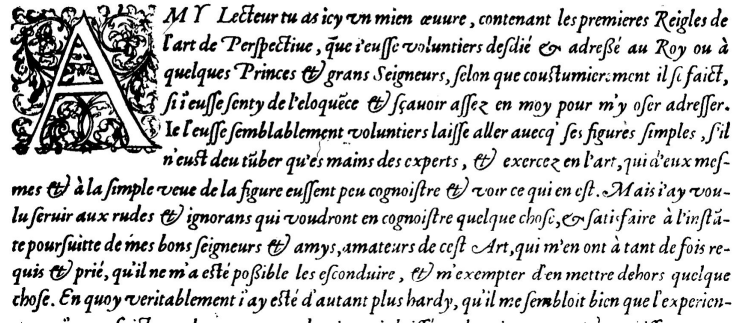 AMY Lecteur tu as icy vn mien œuure, contenant les premieres Reigles de
l'art de Perspectiue, q̃ue i'eusse voluntiers desdié & adreßé au Roy ou à
quelques Princes & grans Seigneurs, selon que coustumierement il se faict,
si i'eusse senty de l'eloquẽce & sçauoir assez en moy pour m'y oser adresser.
Ie l'eusse semblablement voluntiers laisse aller auecq' ses figures simples, s'il
n'eust deu tũber qu'es mains des experts, & exercez en l'art, qui d'eux mes-
mes & à la simple veue de la figure eussent peu cognoistre & voir ce qui en est. Mais i'ay vou-
lu seruir aux rudes & ignorans qui voudront en cognoistre quelque chose, & satisfaire à l'instã-
te poursuitte de mes bons seigneurs & amys, amateurs de cest Art, qui m'en ont à tant de fois re-
quis & prié, qu'il ne m'a esté poßible les esconduire, & m'exempter d'en mettre dehors quelque
chose. En quoy veritablement i'ay esté d'autant plus hardy, qu'il me sembloit bien que l'experien-